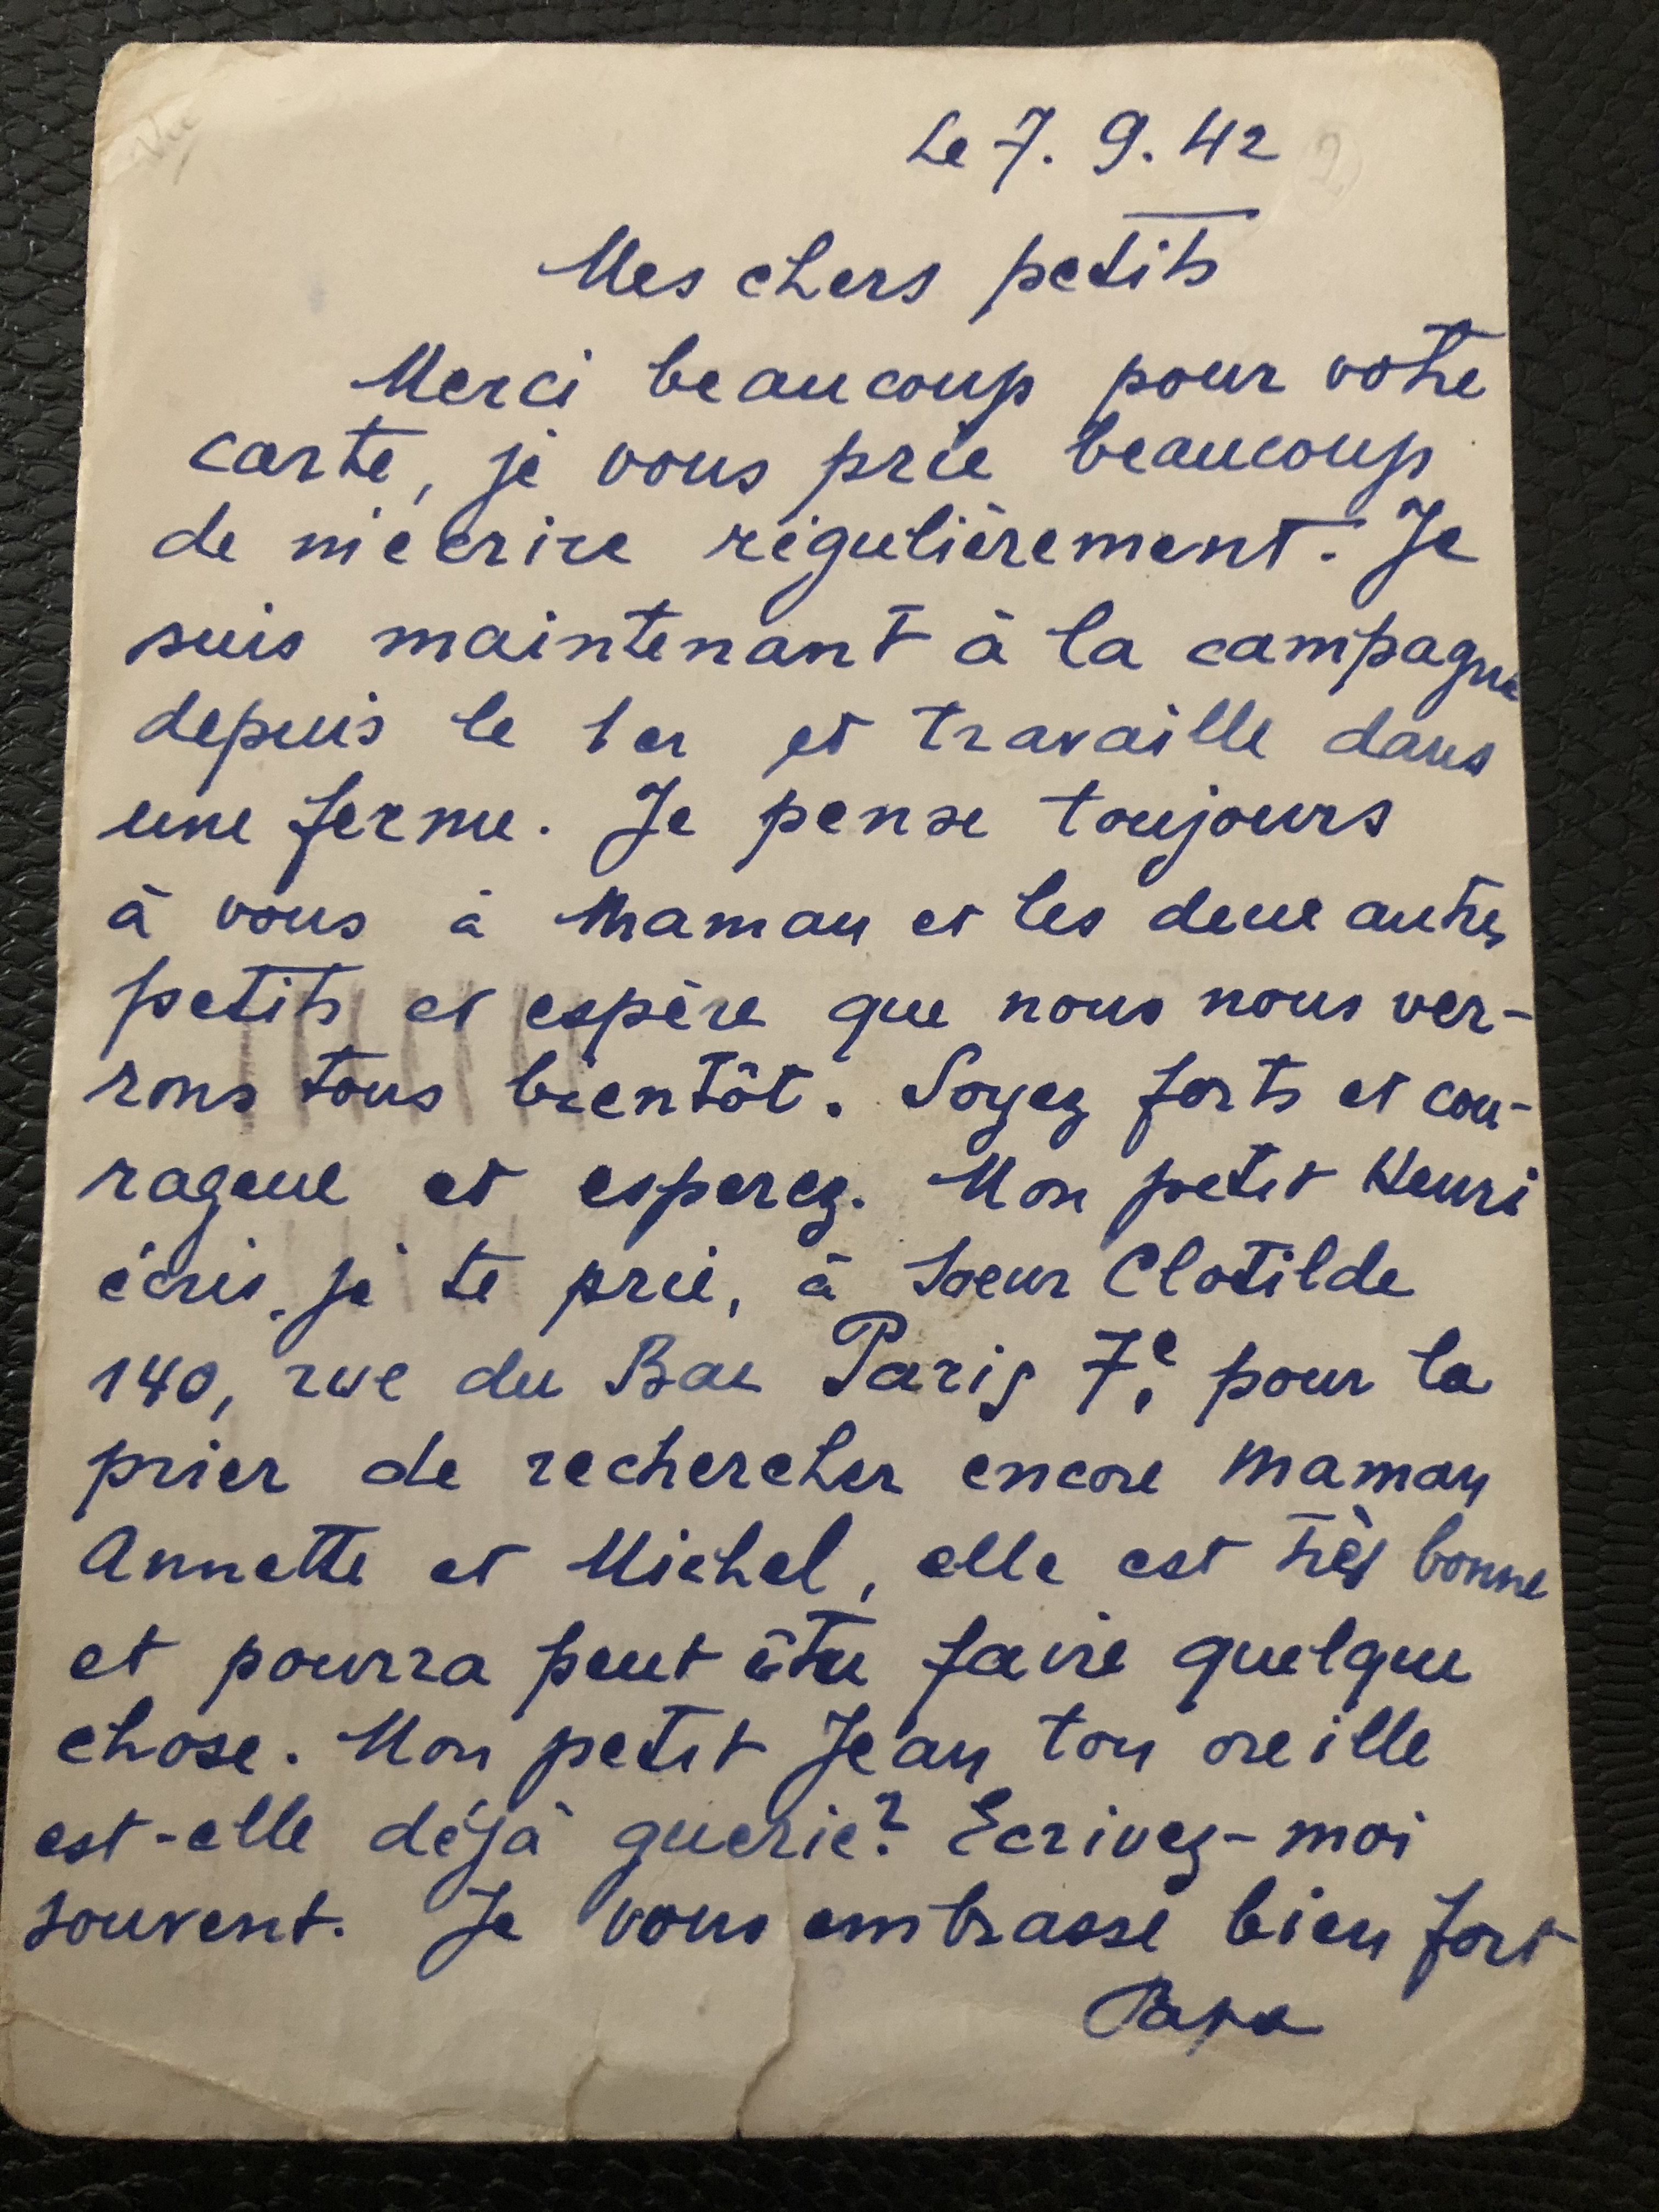 Le 7. 9. 42
2
Mes chers petits
Merci beaucoup pour votre
carte, je vous prie beaucoup
de m'écrire régulièrement. Je
suis maintenant à la campagne
depuis le 1er et travaille dans
une ferme. Je pense toujours
à vous à Maman et les deux autres
petits et espère que nous nous ver-
rons tous bientôt. Soyez forts et cou-
rageux et esperez. Mon petit Henri
écris, je te prie, à Soeur Clotilde
140, rue du Bac Paris 7e. pour la
prier de rechercher encore maman
Annette et Michel, elle est très bonne
et pourra peut être faire quelque
chose. Mon petit Jean ton oreille
est-elle déjà guerie? Ecrivez-moi
souvent. Je vous embrasse bien fort
Papa